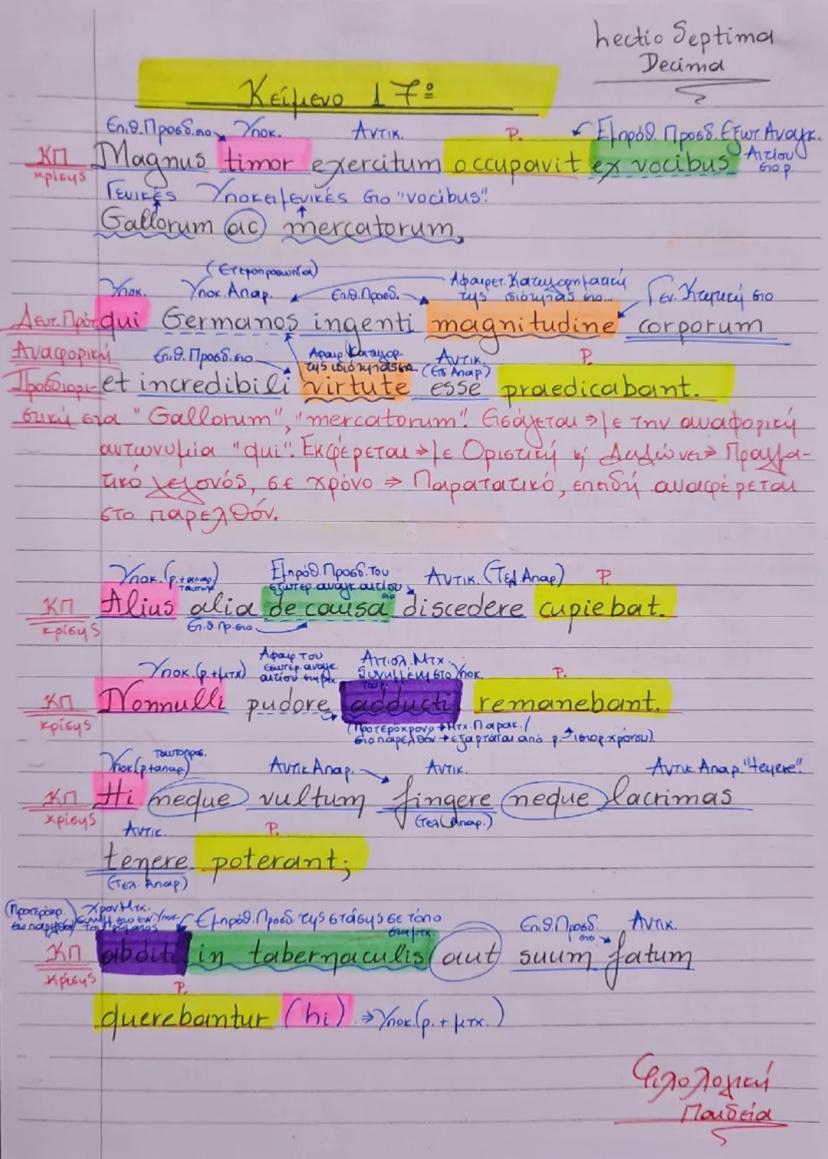 Lectio Septima
Decima
Κείμενο 17ο
Επιθ. Προσδ. στο Υποκ. Αντικ. Ρ. Εμπρόθ. Προσδ. Εξωτ. Αναγκ.
Αιτίου
στο ρ.
ΚΠ Magnus timor exercitum occupavit ex vocibus
κρίσης
Γενικές Υποκειμενικές στο "vocibus".
Gallorum ac mercatorum,
(Ετεροπροσωπία) Αφαιρετ. Κατηγορηματική
της ιδιότητας στο...
Υποκ. Υποκ. Απαρ. Επιθ. Προσδ. Γεν. Κτητική στο
Δευτ. Πρότ. qui Germanos ingenti magnitudine corporum
Αναφορική Επιθ. Προσδ. στο Αφαιρ. Κατηγορ. Αντικ. Ρ.
της ιδιότητας (Ειδ. Απαρ)
Προσδιορι- et incredibili virtute esse praedicabant.
στική στα "Gallorum", "mercatorum". Εισάγεται → με την αναφορική
αντωνυμία "qui". Εκφέρεται → με Οριστική κ' Δηλώνει → Πραγμα-
τικό γεγονός, σε χρόνο → Παρατατικό, επειδή αναφέρεται
στο παρελθόν.
Υποκ. (ρ.+απαρ) Εμπρόθ. Προσδ. του Αντικ. (Τελ. Απαρ) Ρ.
ταυτοπρ. εξωτερ. αναγκ. αιτίου στο
ΚΠ Alius alia de causa discedere cupiebat.
κρίσης Επιθ. Πρ. στο
Υποκ. (ρ+μτχ) Αφαιρ. του Αιτιολ. Μτχ. Ρ.
εσωτερ. αναγκ. Συνημμένη στο Υποκ.
αιτίου στη μτχ
ΚΠ Nonnulli pudore adducti remanebant.
κρίσης (Προτερόχρονο → Μτχ. Παρακ./
στο παρελθόν → εξαρτάται από ρ. ιστορ. χρόνου)
Υποκ (ρ+απαρ) Ταυτοπροσ. Αντικ Απαρ. Αντικ. Αντικ Απαρ. "tenere".
ΚΠ Hi neque vultum fingere neque lacrimas
κρίσης (Τελ. Απαρ.)
Αντικ. Ρ.
tenere poterant;
(Τελ Απαρ)
(Προτερόχρ. Χρον. Μτχ. Εμπρόθ. Προσδ της στάσης σε τόπο Επιθ. Προσδ. Αντικ.
στη μτχ στο
ΚΠ abditi in tabernaculis aut suum fatum
κρίσης
Ρ.
querebantur (hi) → Υποκ (ρ. + μτχ.)
Φιλολογική
Παιδεία